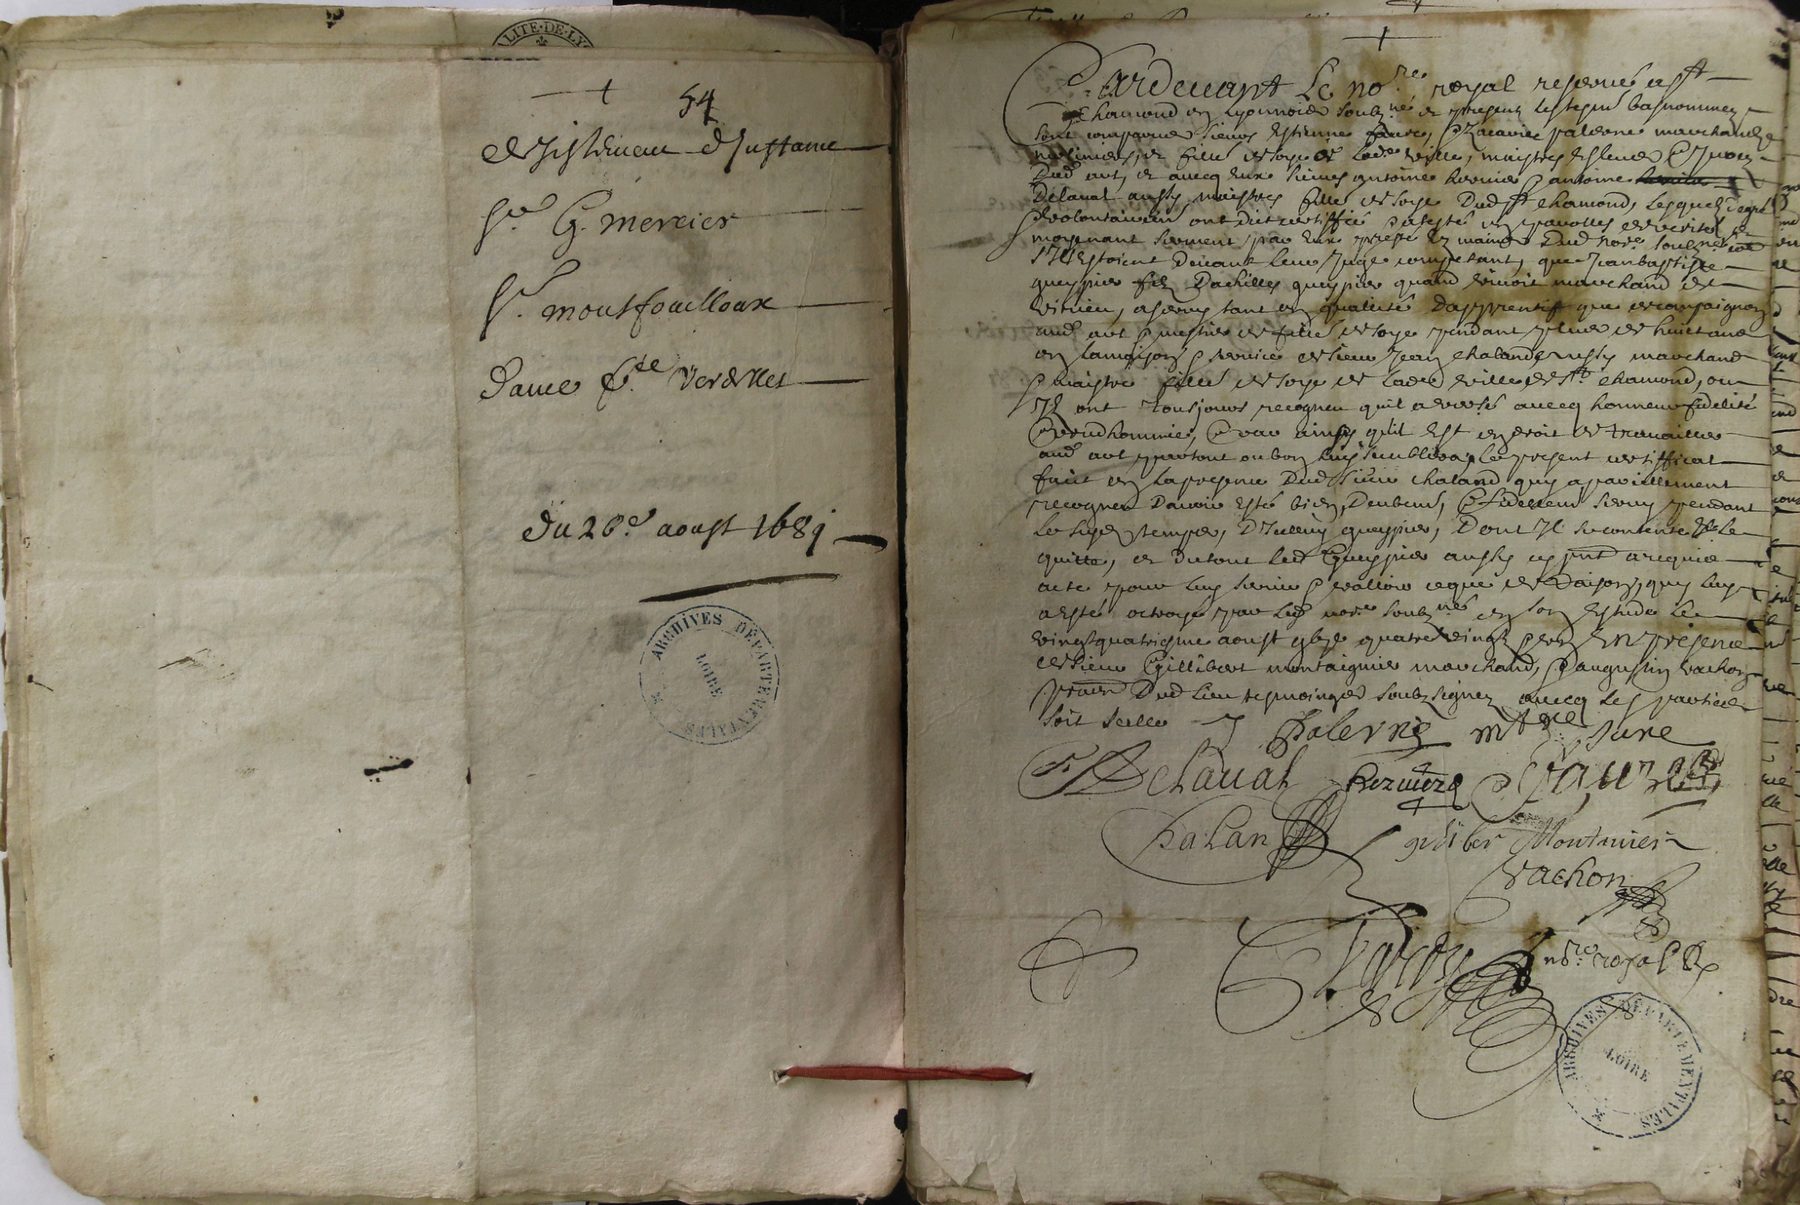 ALITE·DE·LY
54
desistement d'instance
Sr. G. mercier
Sr. montfouilloux
Dame verdellet
du 26e. aoust 1681
ARCHIVES DÉPARTEMENTALES
LOIRE
Pardevant Le nore. royal reservé a st
chamond en lyonnois soubzné et presentz les tesmoins bas nommez
sont comparus sieurs Estienne faure, & Zacarie palerne marchandz
moliniers, et fille de soye de lade ville, maistres
Dud art, et avecq Eux sieurs antoine hervier & antoine
Delaval aussy maistres fille de soye Dud st chamond, lesquels
volontairemt ont dit certiffié & attesté en parolles de verité et
moyenant serment par Eux presté Ez mains Dud nore. soubzné
s'ilz Estoient Devant leur Juge competant, que Jean baptiste
gueppier filz Dachilles gueppier quand vivoit marchand de
virieu, a servy tant en qualité Dapprentif que de compaignon
aud art & mestier de fille de soye pendant plus de huict ans
en la maison & service de sieur Jean chaland aussy marchand
& maistre fille de soye de lade ville de st chamond, ou
Ilz ont tousjours recogneu quil a versé avecq honneur fidelité
& preudhommie, & par ainsy quil Est en droit de travailler
aud art partout ou bon luy semblera, le present certifficat
fait en la presence Dud sieur chaland quy a pareillement
recogneu Davoir Esté bien, Deubemt, & fidellemt servy pendant
le susd temps, Dicelluy gueppier, Dont Il se contente & le
quitte, et du tout led Gueppier aussy icy pnt a requis
acte pour luy servir & valloir ce que de Raison, quy luy
a Esté octroyé par led nore soubzné en son Estude le
vingtquatriesme aoust gbzc quatrevingt & un En presence
de sieur Gillibert montaignier marchand, & augustin vachon
pratn Dud lieu tesmoingtz soubzsignez avecq les parties
soit seelle
Palerne
Delaval hervier faure
Chaland gilliber Montanier
Vachon
nore royal
ARCHIVES DÉPARTEMENTALES
LOIRE